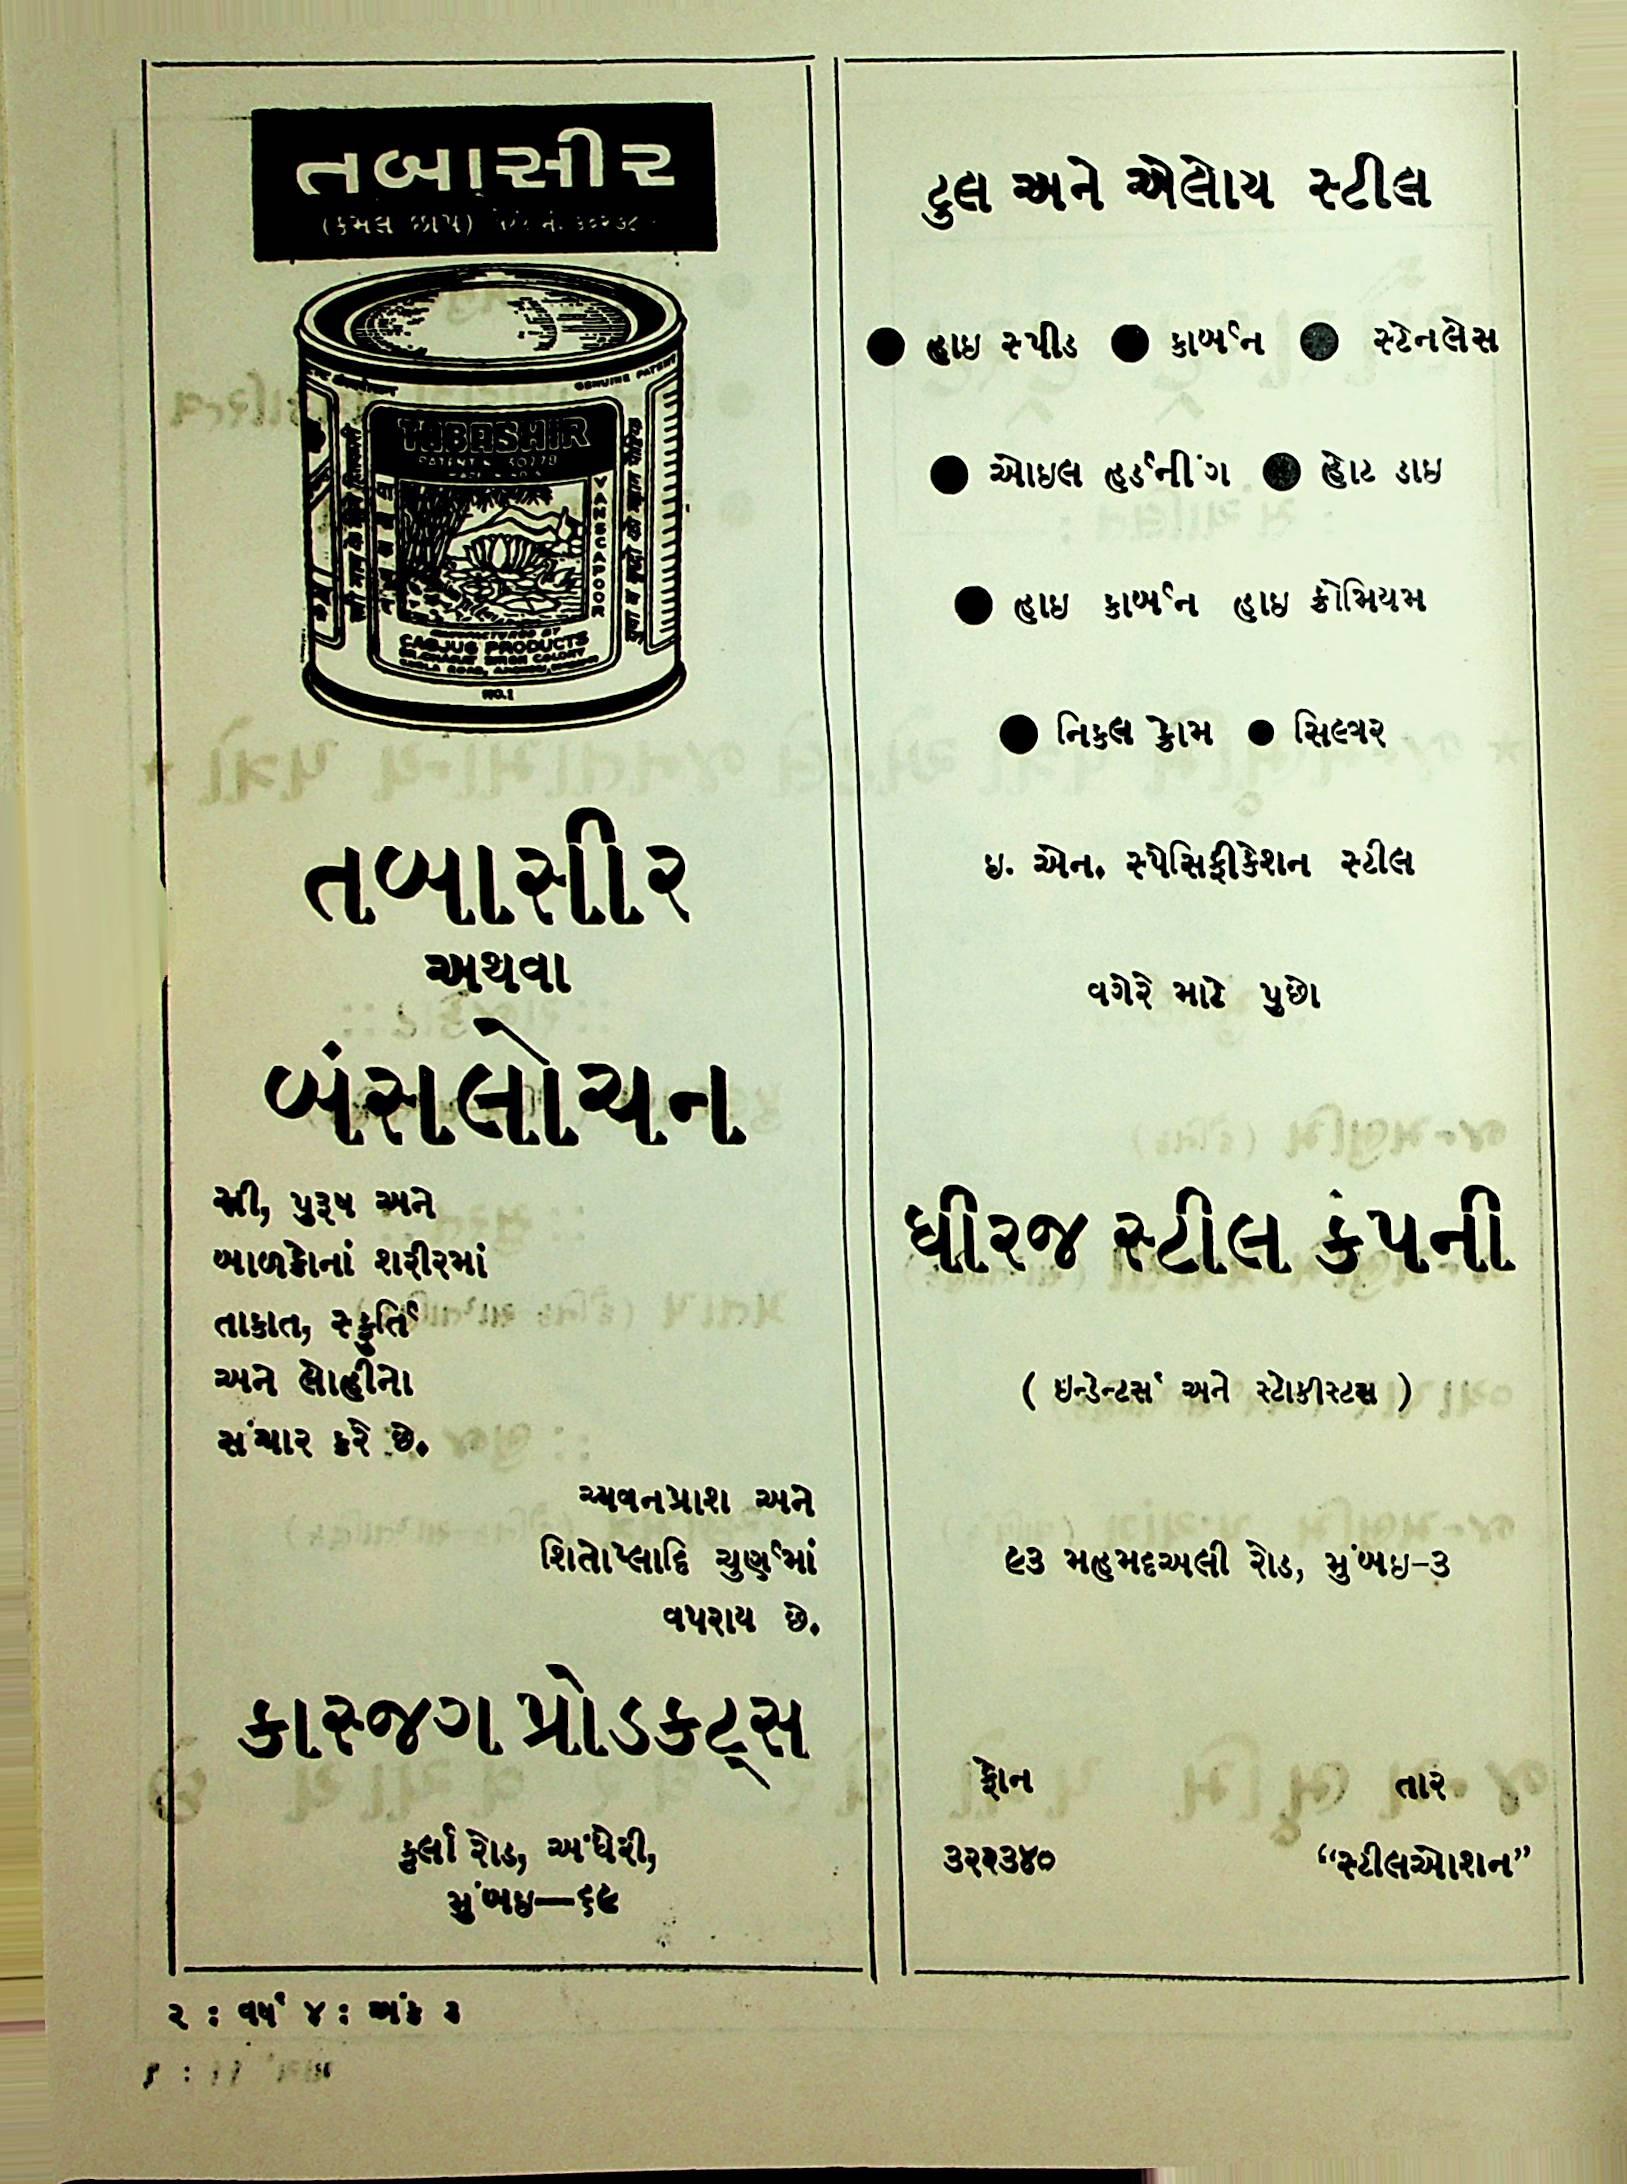 તબાસીર
(કમલ છાપ)
GENUINE PATENT
TABASHIR
VANSCAPOOR
MANUFACTURED BY
CASJUG PRODUCTS
NO.1
તબાસીર
અથવા
બંસલોચન
સ્ત્રી, પુરૂષ અને
બાળકોનાં શરીરમાં
તાકાત, સ્ફુર્તિ
અને લોહીનો
સંચાર કરે છે.
ચ્યવનપ્રાશ અને
શિતોપ્લાદિ ચુર્ણમાં
વપરાય છે.
કાસ્જગ પ્રોડકટ્સ
કુર્લા રોડ, અંધેરી,
મુંબઇ—૬૯
ટુલ અને એલોય સ્ટીલ
● હાઇ સ્પીડ ● કાર્બન ● સ્ટેનલેસ
● ઓઇલ હર્ડનીંગ ● હોટ ડાઇ
● હાઇ કાર્બન હાઇ ક્રોમિયમ
● નિકલ ક્રોમ ● સિલ્વર
ઇ. એન. સ્પેસિફીકેશન સ્ટીલ
વગેરે માટે પુછો
ધીરજ સ્ટીલ કંપની
( ઇન્ડેન્ટર્સ અને સ્ટોકીસ્ટસ )
૯૩ મહમદઅલી રોડ, મુંબઇ-૩
ફોન તાર
૩૨૨૩૪૦ “સ્ટીલઓશન”
૨ : વર્ષ ૪ : અંક